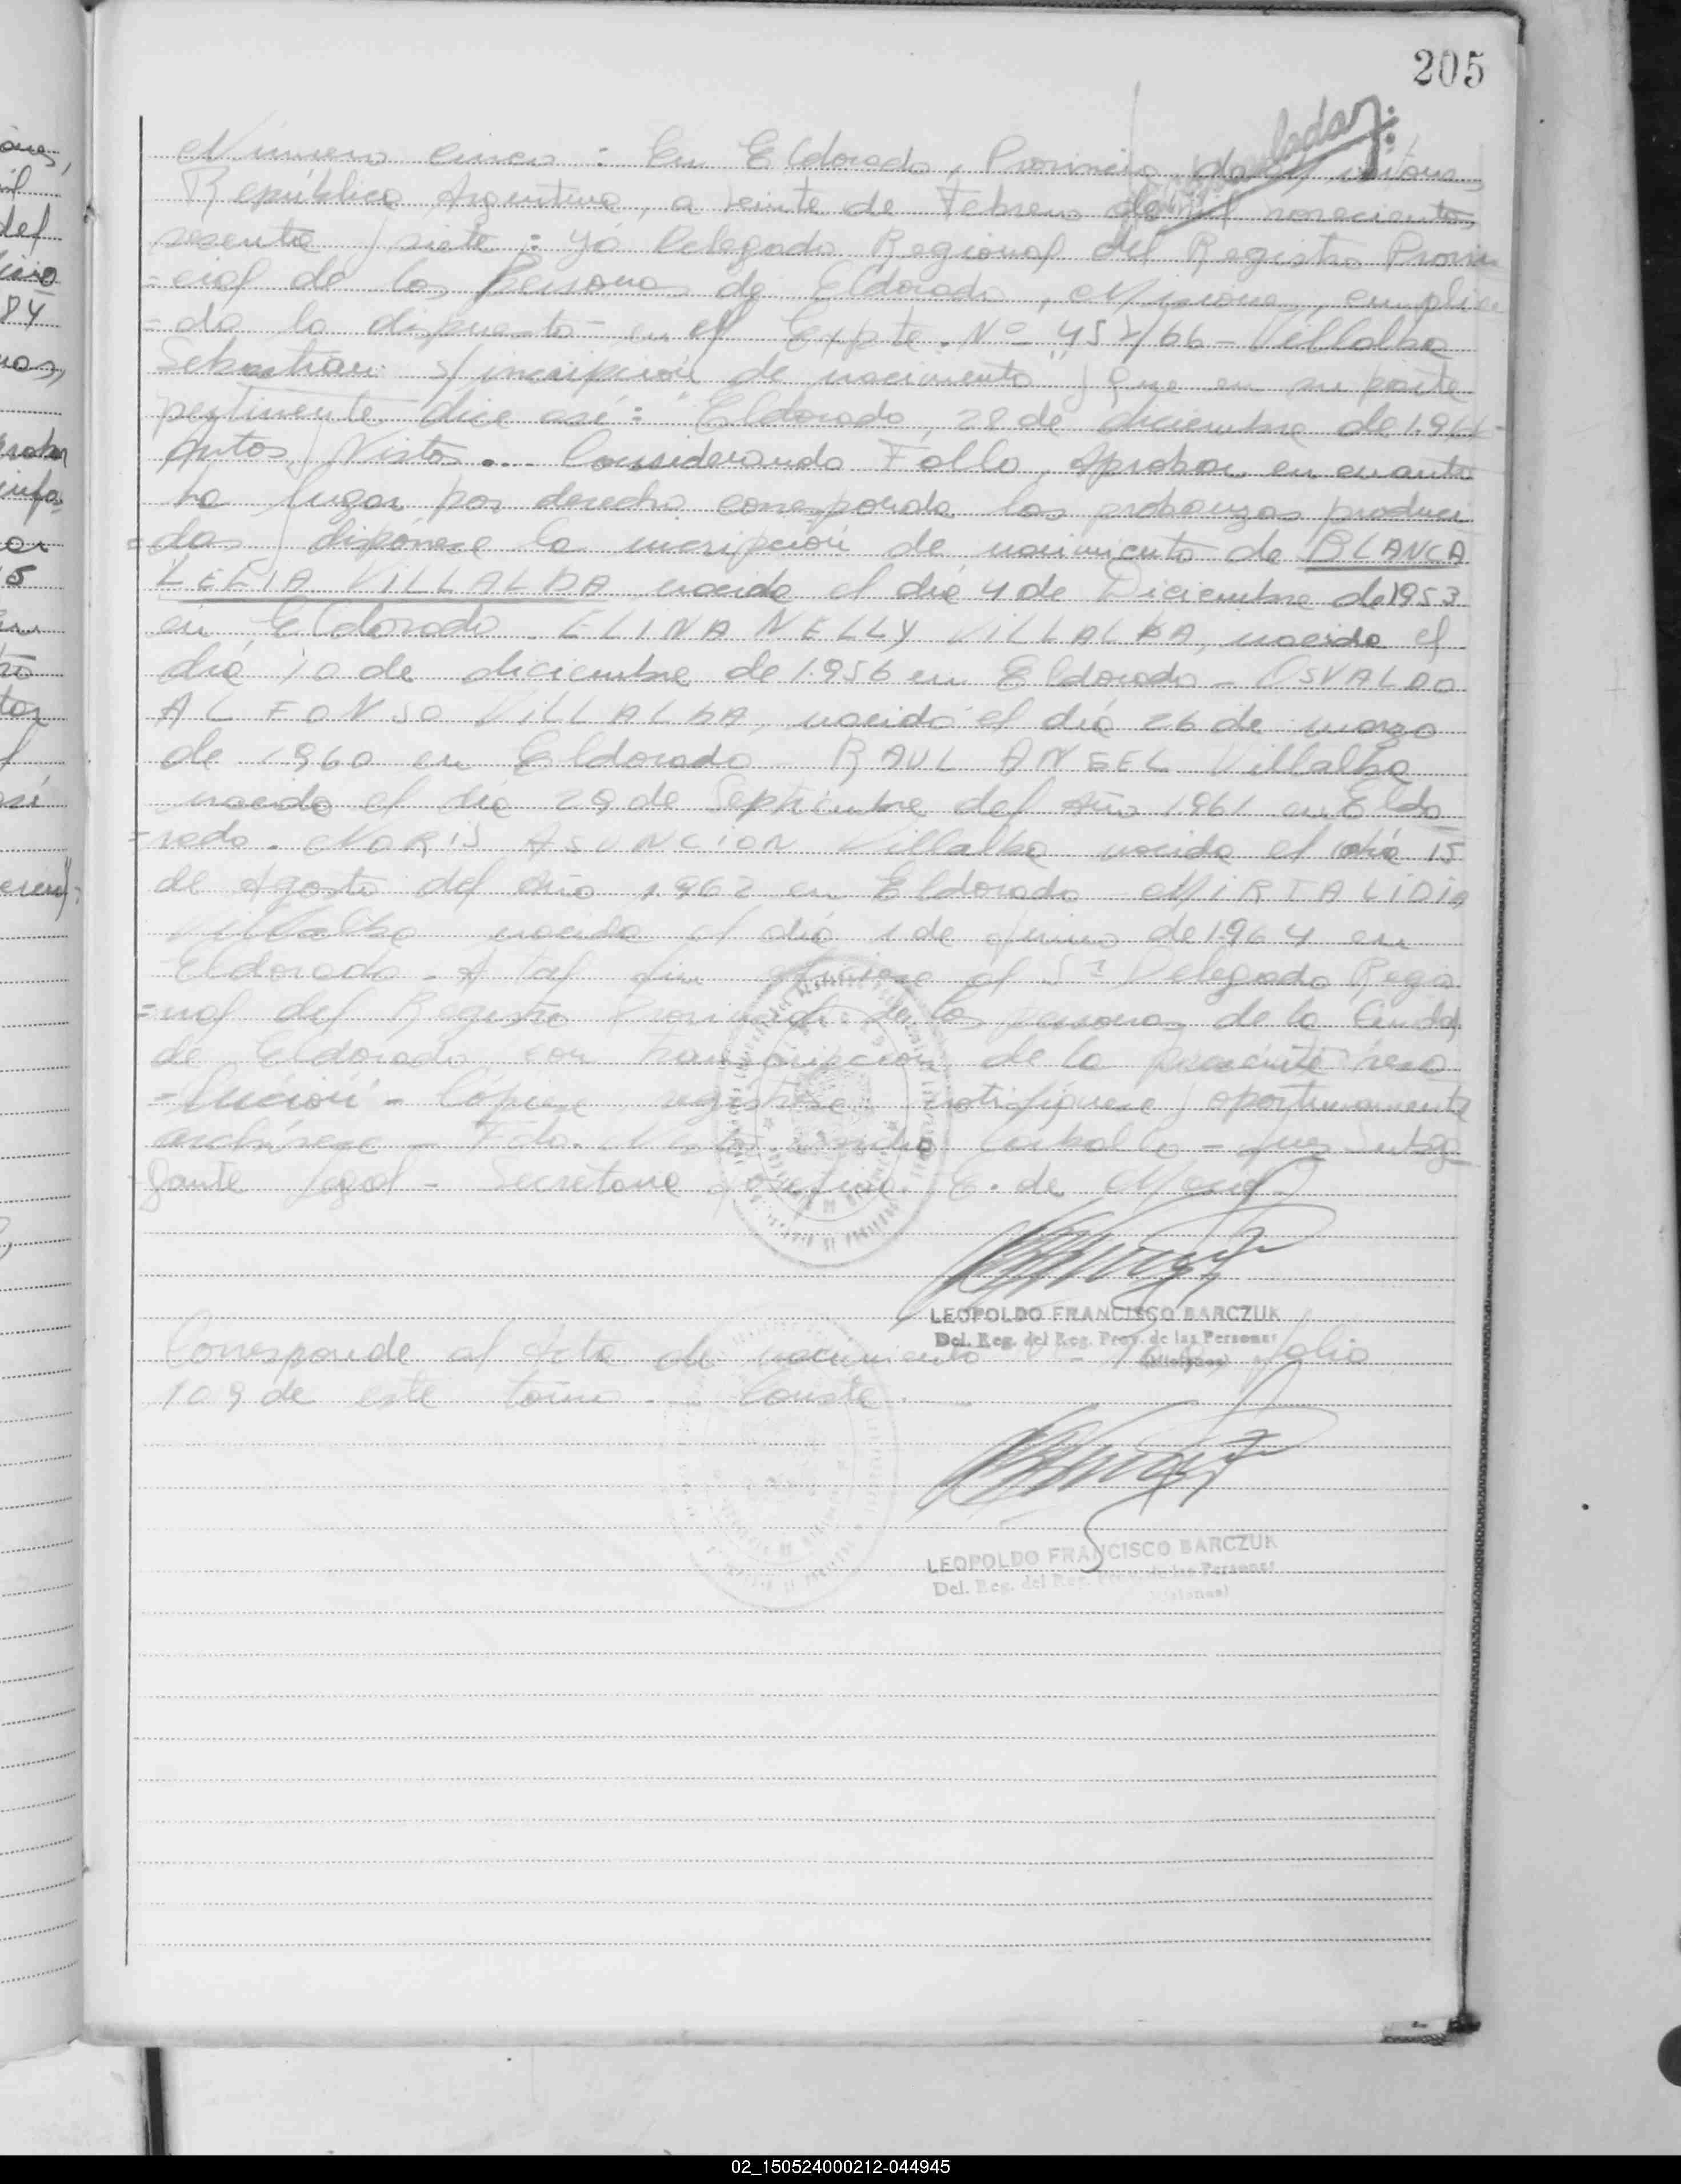 205
Número cinco : En Eldorado, Provincia de Misiones,
República Argentina, a veinte de Febrero de mil novecientos
sesenta y siete : Yó Delegado Regional del Registro Provin
=cial de las Personas de Eldorado, Misiones, cumplien
=do lo dispuesto en el Expte. Nº 457/66 - Villalba
Sebastian s/ inscripción de nacimiento" y que en su parte
pertinente dice así: "Eldorado, 28 de diciembre de 1.966-
Autos y Vistos... Considerando Fallo, Aprobar en cuanto
ha lugar por derecho corresponda las probanzas produci
=das y dispónese la incripción de nacimiento de BLANCA
LELIA VILLALBA nacida el día 4 de Diciembre de 1953
en Eldorado. ELINA NELLY VILLALBA, nacida el
día 10 de diciembre de 1.956 en Eldorado - OSVALDO
ALFONSO VILLALBA, nacido el día 26 de marzo
de 1.960 en Eldorado RAUL ANGEL Villalba
nacido el día 29 de Septiembre del Año 1.961 en Eldo
=rado. NORIS ASUNCION Villalba nacida el día 15
de Agosto del año 1.962 en Eldorado - MIRTA LIDIA
Villalba nacida el día 1 de Junio de 1.964 en
Eldorado - A tal fin ofíciese al Sr Delegado Regio
=nal del Registro Provincial de las personas de la Ciudad
de Eldorado con transcripción de la presente reso
=lución - Cópiese, regístrese, notifíquese y oportunamente
archívese - Fdo. Carballo - Juez Subro
gante Legal - Secretaria Josefina E. de
LEOPOLDO FRANCISCO BARCZUK
Del. Reg. del Reg. Prov. de las Personas
(Misiones)
Corresponde al Acta de nacimiento folio
109 de este tomo. - Conste. -
LEOPOLDO FRANCISCO BARCZUK
Del. Reg. del Reg. Prov. de las Personas
(Misiones)
02_150524000212-044945